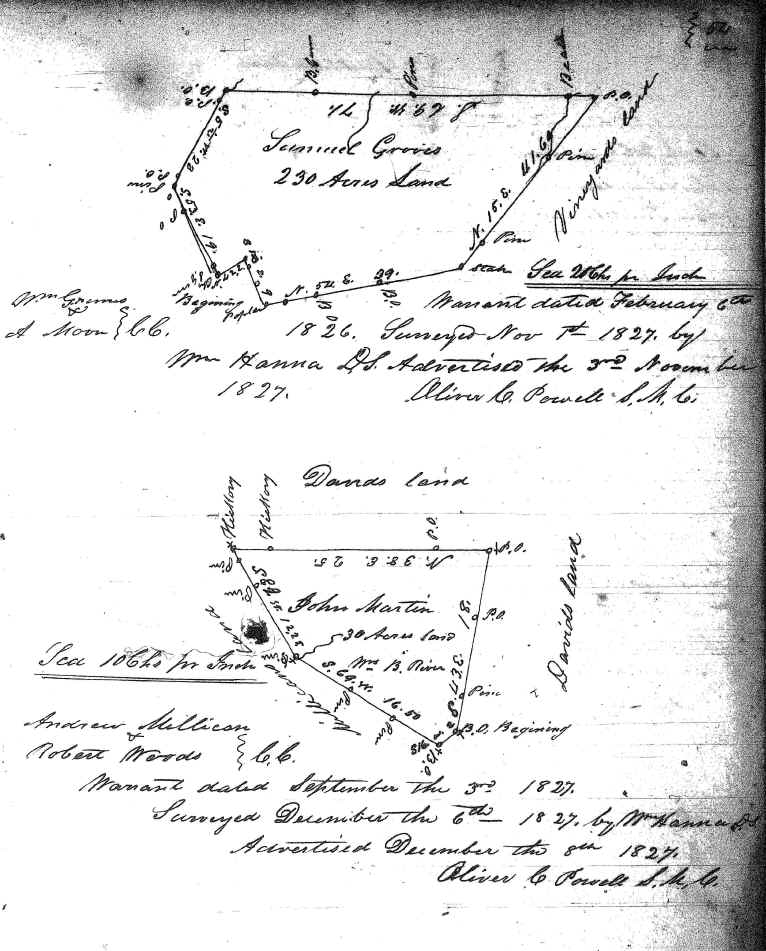 B.Gum
Pine
P.O.
B.O.
P.O.
71
S. 69. W.
Samuel Groves
230 Acres Land
Vineyards land
N. 15. E. 41.69
Pine
Pine
Stake
P.O.
Pine
Begining
Poplar
N. 54 E.
Sca 20 Chs pr Inch
Wm Grimes
&
A Moon } C.C.
Warrant dated February 6th
1826. Surveyed Nov 1st 1827. by
Wm Hanna D.S. Advertised the 3rd November
1827. Oliver C. Powell S.M.C.
Davids land
Hickory
Hickory
P.O.
P.O.
N. 38. E. 25.
Davids Land
John Martin
30 Acres land
Wrs B. River
P.O.
18.
Pine
Pine
Pine
Pine
Pine
Millicans land
Sca 10 Chs pr Inch
B.O. Begining
B.O.
Andrew Millican
&
Robert Woods } C.C.
Warrant dated September the 3rd 1827.
Surveyed December the 6th 1827. by Wm Hanna D.S.
Advertised December the 8th 1827.
Oliver C Powell S.M.C.